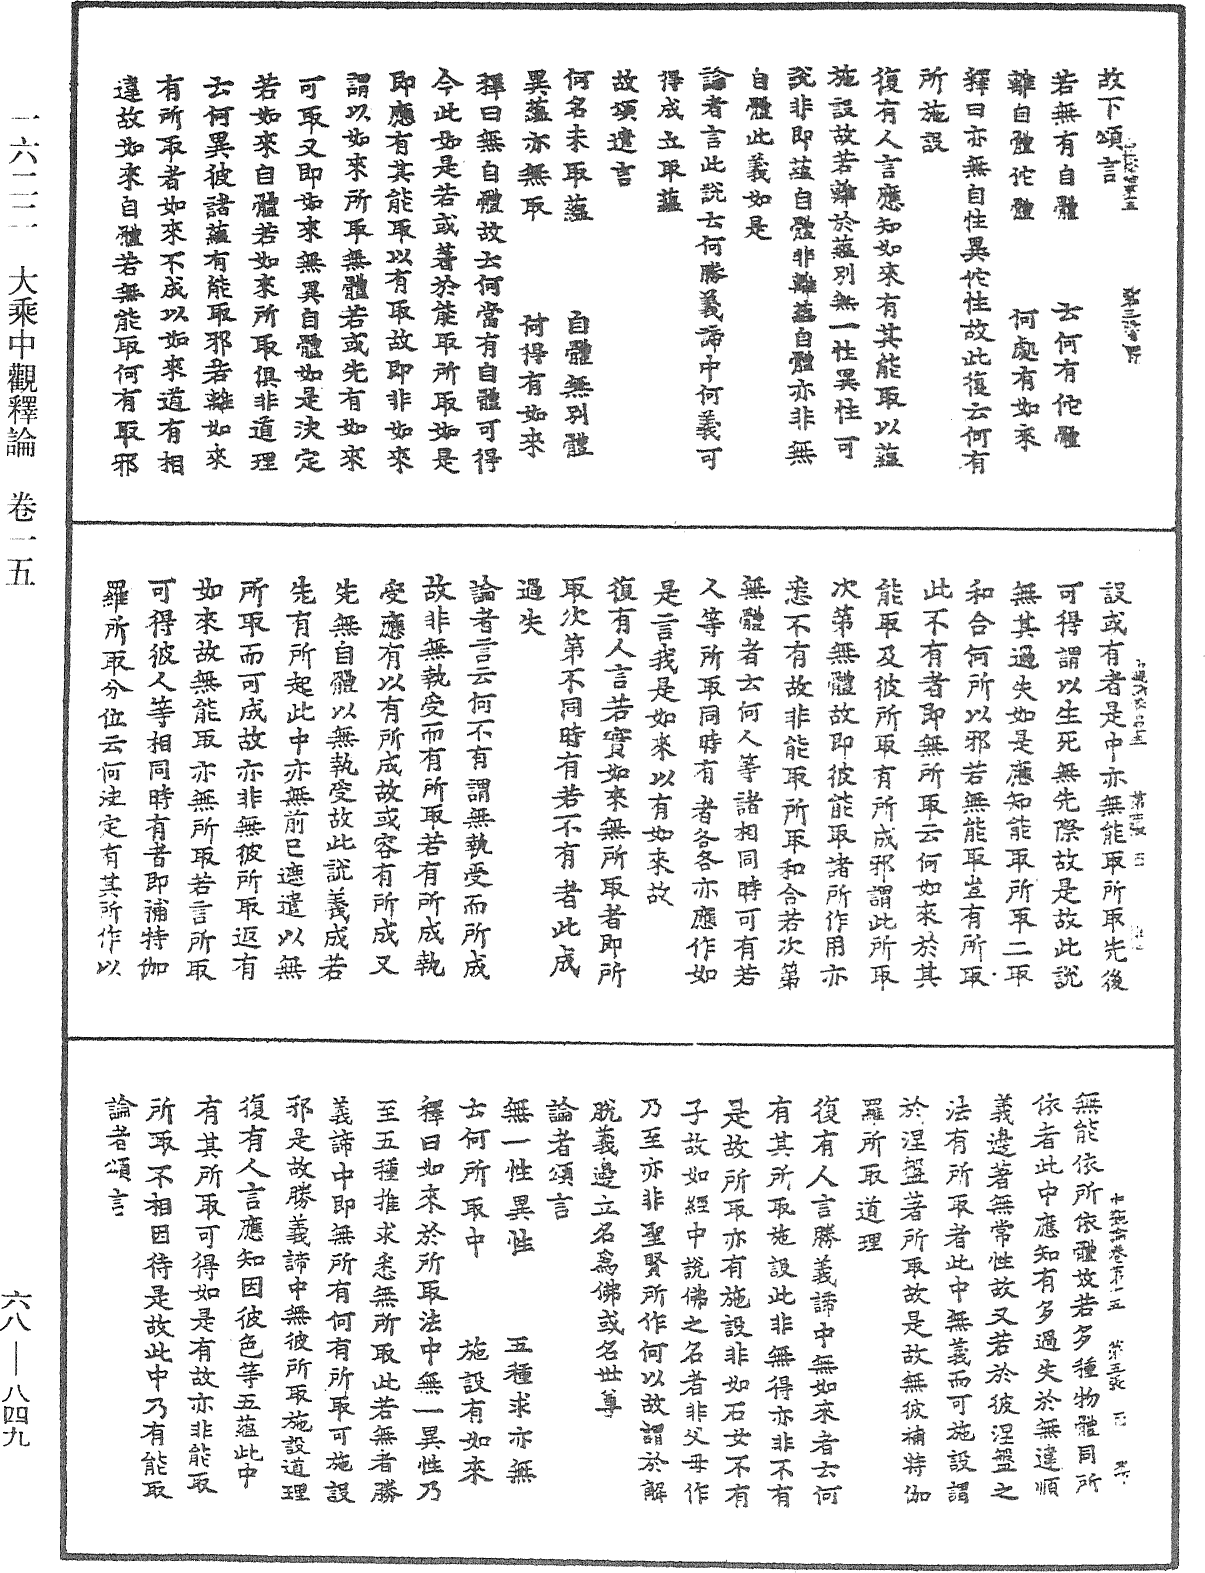 故下頌言
若無有自體　云何有佗體
離自體佗體　何處有如來
釋曰亦無自性異佗性故此復云何有
所施設
復有人言應知如來有其能取以蘊
施設故若離於蘊別無一性異性可
說非即蘊自體非離蘊自體亦非無
自體此義如是
論者言此說云何勝義諦中何義可
得成立取蘊
故頌遣言
何名未取蘊　自體無別體
異蘊亦無取　何得有如來
釋曰無自體故云何當有自體可得
今此如是若或著於能取所取如是
即應有其能取以有取故即非如來
謂以如來所取無體若或先有如來
可取又即如來無異自體如是決定
若如來自體若如來所取俱非道理
云何異彼諸蘊有能取邪若離如來
有所取者如來不成以如來道有相
違故如來自體若無能取何有取邪
設或有者是中亦無能取所取先後
可得謂以生死無先際故是故此說
無其過失如是應知能取所取二取
和合何所以邪若無能取豈有所取
此不有者即無所取云何如來於其
能取及彼所取有所成邪謂此所取
次第無體故即彼能取諸所作用亦
悉不有故非能取所取和合若次第
無體者云何人等諸相同時可有若
人等所取同時有者各各亦應作如
是言我是如來以有如來故
復有人言若實如來無所取者即所
取次第不同時有若不有者此成
過失
論者言云何不有謂無執受而所成
故非無執受而有所取若有所成執
受應有以有所成故或容有所成又
先無自體以無執受故此說義成若
先有所起此中亦無前已遮遣以無
所取而可成故亦非無彼所取返有
如來故無能取亦無所取若言所取
可得彼人等相同時有者即補特伽
羅所取分位云何決定有其所作以
無能依所依體故若多種物體同所
依者此中應知有多過失於無違順
義邊著無常性故又若於彼涅盤之
法有所取者此中無義而可施設謂
於涅盤著所取故是故無彼補特伽
羅所取道理
復有人言勝義諦中無如來者云何
有其所取施設此非無得亦非不有
是故所取亦有施設非如石女不有
子故如經中說佛之名者非父母作
乃至亦非聖賢所作何以故謂於解
脫義邊立名爲佛或名世尊
論者頌言
無一性異性　五種求亦無
云何所取中　施設有如來
釋曰如來於所取法中無一異性乃
至五種推求悉無所取此若無者勝
義諦中即無所有何有所取可施設
邪是故勝義諦中無彼所取施設道理
復有人言應知因彼色等五蘊此中
有其所取可得如是有故亦非能取
所取不相因待是故此中乃有能取
論者頌言
一六二二　大乘中觀釋論　卷一五
六八—八四九